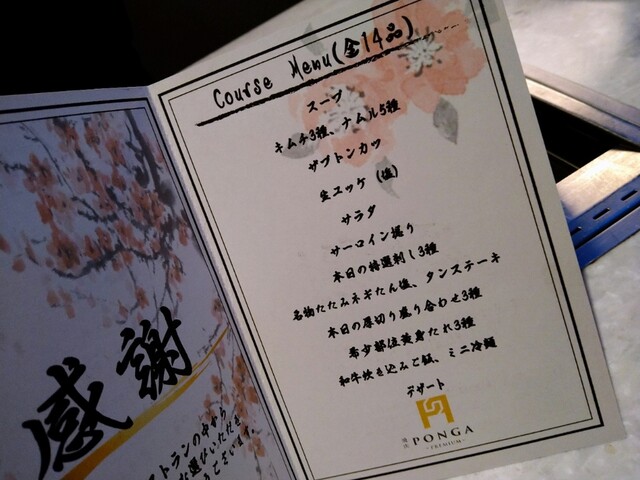 感謝
ストランの中から
お選びいただき
うございます。
Course Menu(全14品)
スープ
キムチ3種、ナムル5種
ザブトンカツ
生ユッケ(塩)
サラダ
サーロイン握り
本日の特選刺し3種
名物たたみネギたん塩、タンステーキ
本日の厚切り盛り合わせ3種
希少部位黄身たれ3種
和牛炊き込みご飯、ミニ冷麺
デザート
PONGA
-PREMIUM-